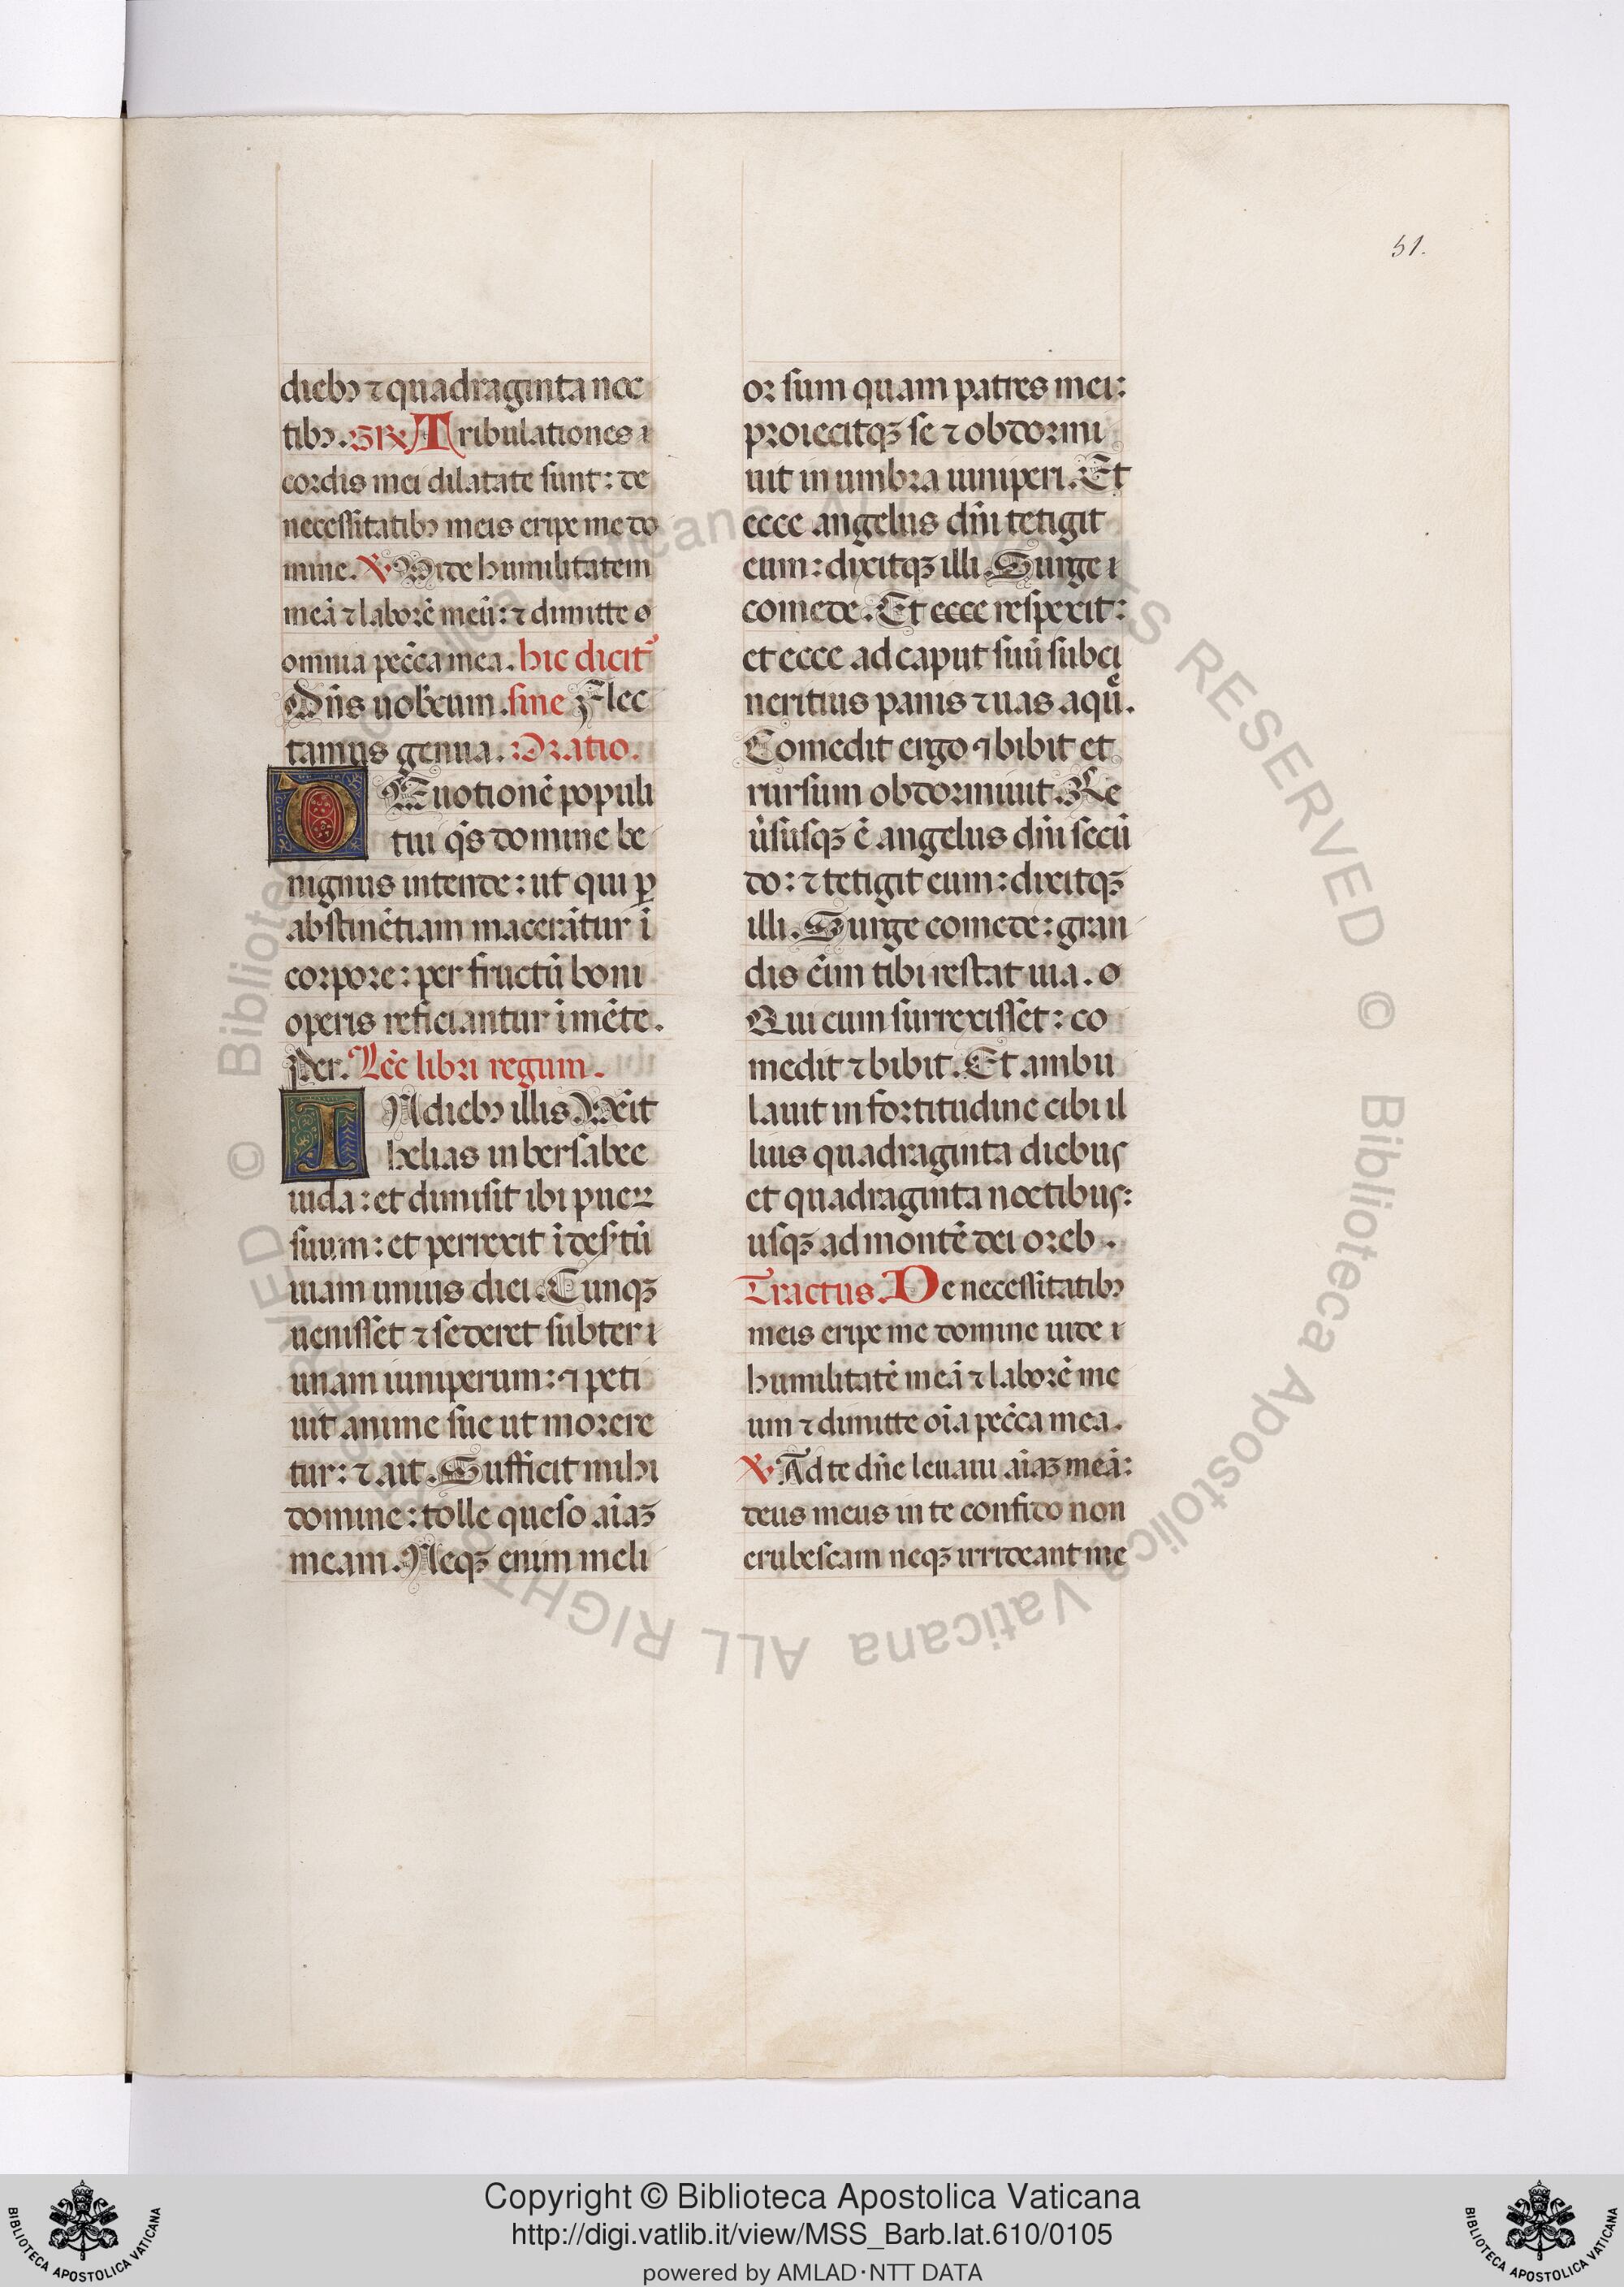 51.
diebꝫ ⁊ quadraginta noc
tibꝫ. GR̃ Tribulationes i
cordis mei dilatate sunt: de
necessitatibꝫ meis eripe me do
mine. ℣ Vide humilitatem
meā ⁊ laborē meū: ⁊ dimitte o
omnia pecc̄a mea. hic dicit᷑
Dn̄s uobcum. sine Flec
tamus genua. Oratio.
DEuotionē populi
tui qs̄ domine be
nignus intende: ut qui ꝑ
abstinētiam macerātur ī
corpore: per fructū boni
operis reficiantur ī mēte.
Per. Lēc libri regum.
IN diebꝫ illis. Vēit
helias in bersabee
iuda: et dimisit ibi pueꝝ
suum: et perrexit ī desʼtū
uiam unius diei. Cunqꝫ
uenisset ⁊ sederet subter i
unam iuniperum: ⁊ peti
uit anime sue ut morere
tur: ⁊ ait. Sufficit mihi
domine: tolle queso aīaꝫ
meam. Neqꝫ enim meli
or sum quam patres mei:
proiecitqꝫ se ⁊ obdormi
uit in umbra iuniperi. Et
ecce angelus dn̄i tetigit
eum: dixitqꝫ illi. Surge i
comede. Et ecce respexit:
et ecce ad caput suū subci
neritius panis ⁊ uas aqͤ̄.
Comedit ergo ⁊ bibit et
rursum obdormiuit. Re
ūsusqꝫ ē angelus dn̄i secū
do: ⁊ tetigit eum: dixitqꝫ
illi. Surge comede: gran
dis ēim tibi restat uia. o
Qui cum surrexisset: co
medit ⁊ bibit. Et ambu
lauit in fortitudine cibi il
lius quadraginta diebus
et quadraginta noctibus:
usqꝫ ad montē dei oreb.
Tractus. De necessitatibꝫ
meis eripe me domine uide i
humilitatē meā ⁊ laborē me
um ⁊ dimitte oīa pecc̄a mea.
℣ Ad te dn̄e leuaui aīaꝫ meā:
deus meus in te confido non
erubescam neqꝫ irrideant me
© Biblioteca Apostolica Vaticana ALL RIGHTS RESERVED © Biblioteca Apostolica Vaticana ALL RIGHTS RESERVED
Copyright © Biblioteca Apostolica Vaticana
http://digi.vatlib.it/view/MSS_Barb.lat.610/0105
powered by AMLAD·NTT DATA
BIBLIOTECA APOSTOLICA VATICANA
BIBLIOTECA APOSTOLICA VATICANA